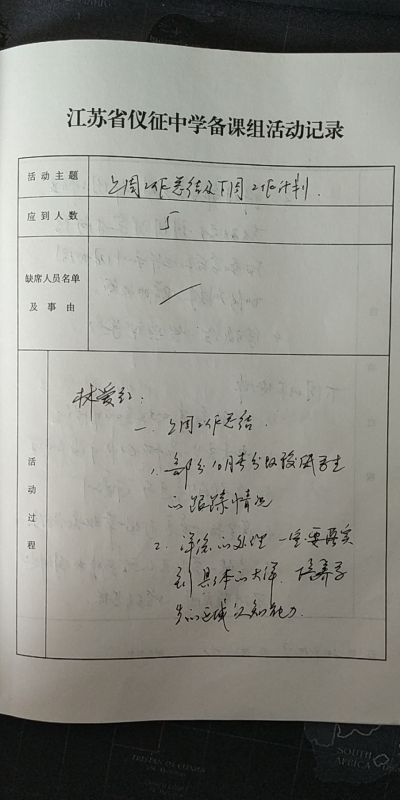 江苏省仪征中学备课组活动记录
活动主题
上周工作总结及下周工作计划.
应到人数
5
缺席人员名单
及事由
活动过程
林爱红:
一. 上周工作总结.
1. 部分10月考分段
的跟踪情况
2. 的处理 一定要落实
到具体的大洋. 培养学
生的区域认知能力.
SOUTH
AFRICA
TRISTAN DA CUNHA